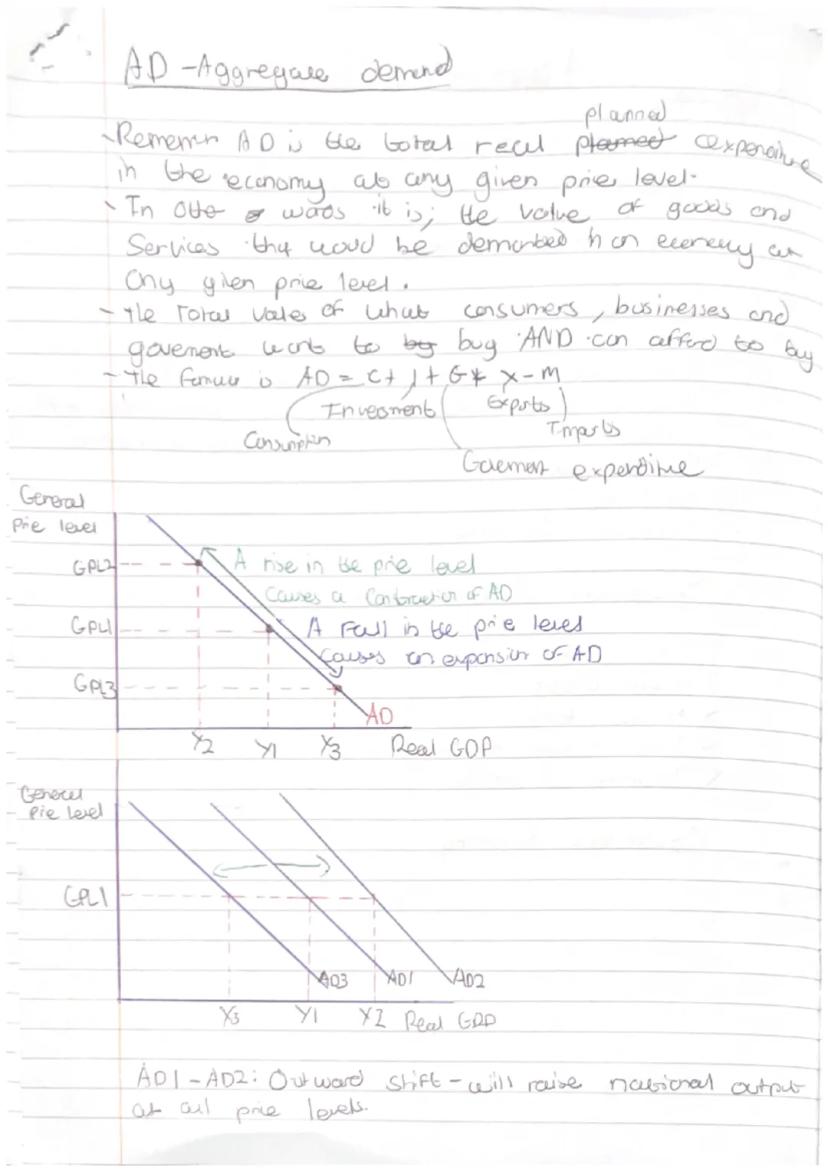 AD - Aggregate demand
planned
- Remember AD is the total real planned expenditure
in the economy at any given price level.
- In other words it is; the value of goods and
Services that would be demanded in an economy at
any given price level.
- The Total value of what consumers, businesses and
government want to by buy AND can afford to buy
- The formula is AD = C + I + G + X - M
Investment
Exports
Consumption
Imports
Government expenditure
General
price level
GPL2
A rise in the price level
causes a contraction of AD
GPL1
A Fall in the price level
causes an expansion of AD
GPL3
AD
Y2 Y1 Y3 Real GDP
General
price level
GPL1
AD3 AD1 AD2
Y3 Y1 Y2 Real GDP
AD1 - AD2: Outward shift - will raise national output
at all price levels.